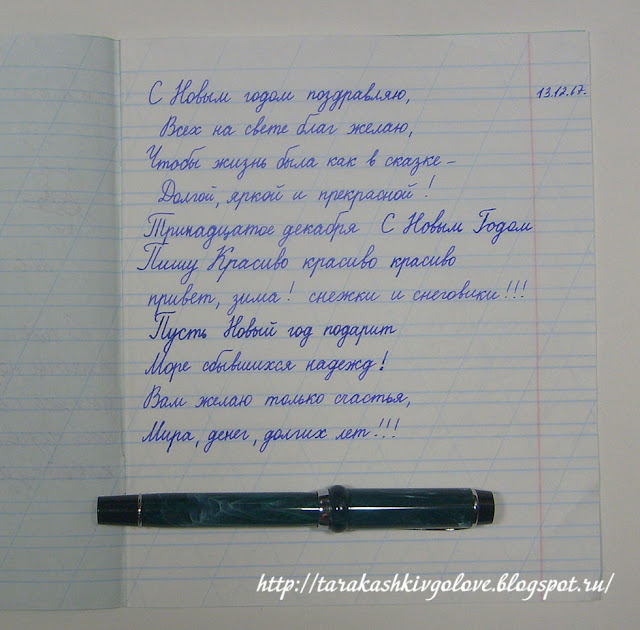 С Новым годом поздравляю,
13.12.67.
Всех на свете благ желаю,
Чтобы жизнь была как в сказке –
Долгой, яркой и прекрасной!
Тринадцатое декабря С Новым Годом
Пишу Красиво красиво красиво
привет, зима! снежки и снеговики!!!
Пусть Новый год подарит
Море сбывшихся надежд!
Вам желаю только счастья,
Мира, денег, долгих лет!!!
http://tarakashkivgolove.blogspot.ru/